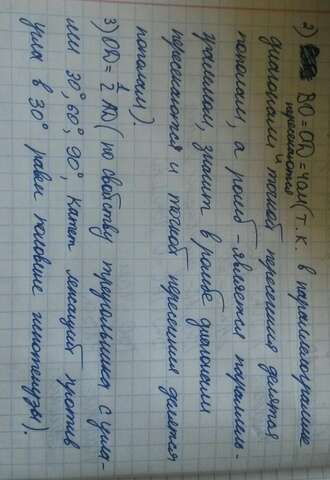 2) BO = OD = 4 см (т. к. в параллелограмме
диагонали пересекаются и точкой пересечения делятся
пополам, а ромб - является параллело-
граммом, значит в ромбе диагонали
пересекаются и точкой пересечения делятся
пополам).
3) OD = 1/2 AD (по свойству треугольника с угла-
ми 30°, 60°, 90°, катет лежащий против
угла в 30° равен половине гипотенузы).